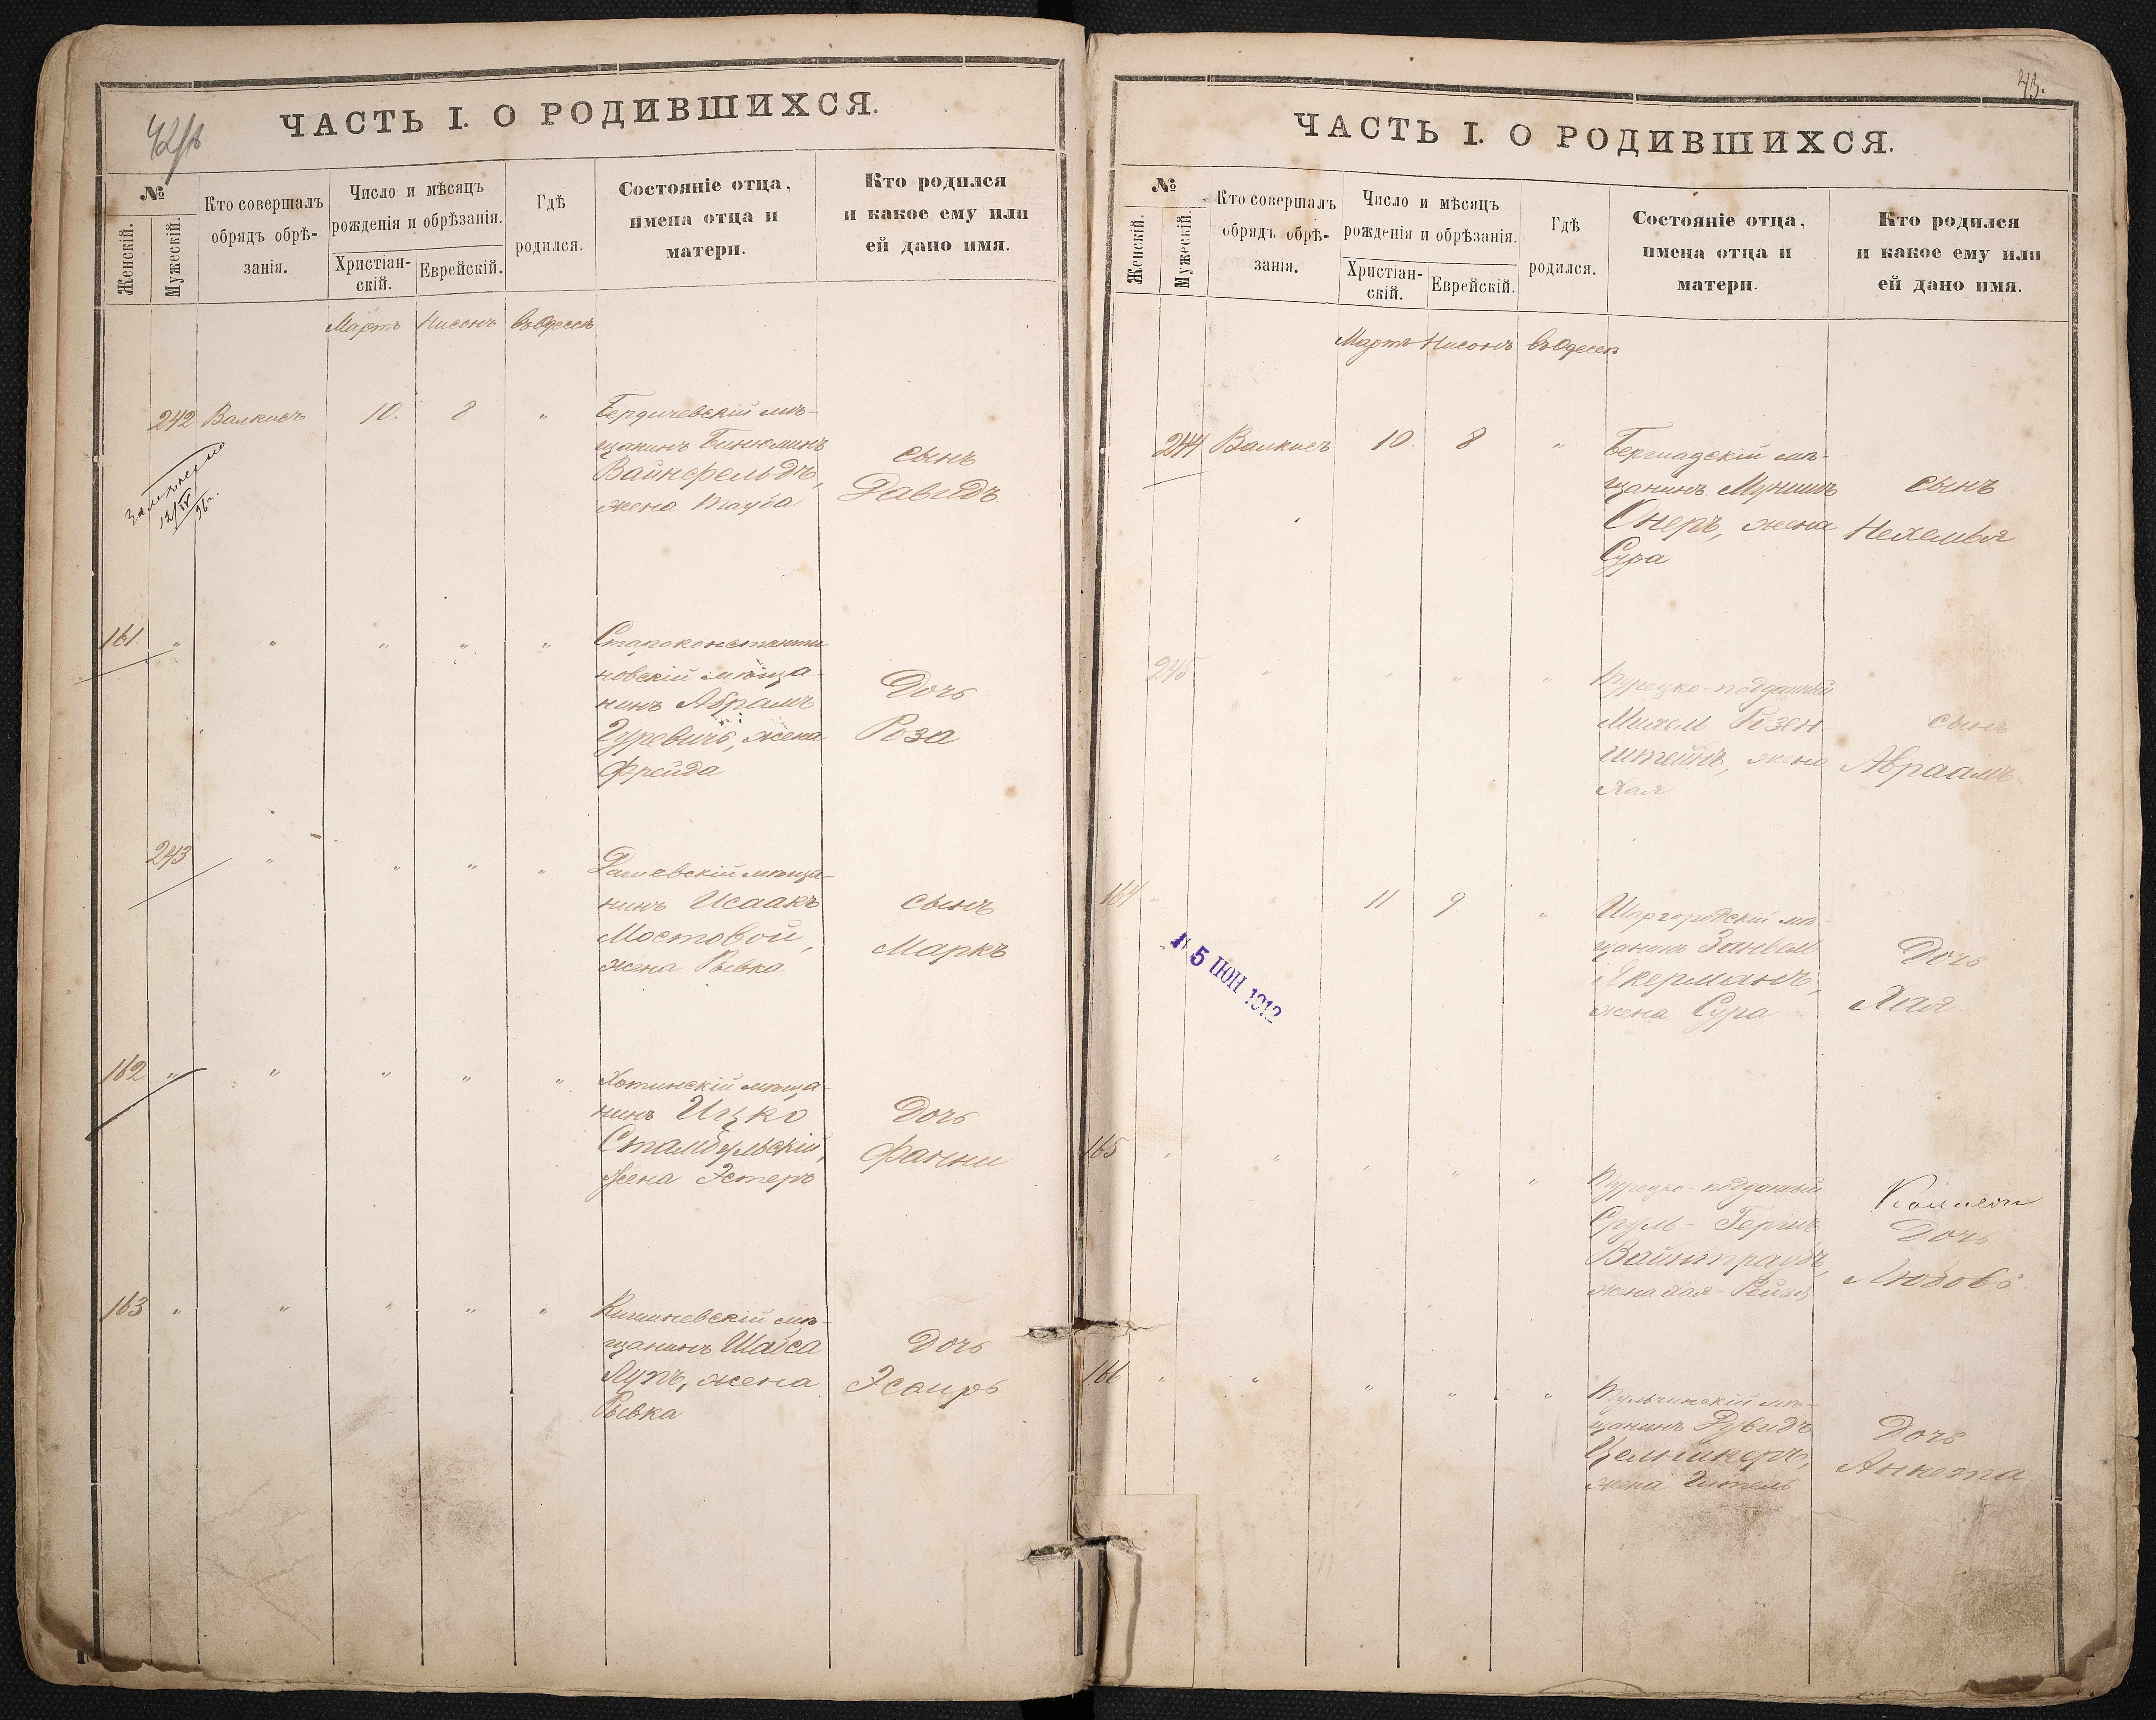 ЧАСТЬ I. О РОДИВШИХСЯ.
№
Женскій.
Мужескій.
Кто совершалъ
обрядъ обрѣ-
занія.
Число и мѣсяцъ
рожденія и обрѣзанія.
Христіан-
скій.
Еврейскій.
Гдѣ
родился.
Состояніе отца,
имена отца и
матери.
Кто родился
и какое ему или
ей дано имя.
Мартъ Нисонъ въ Одессѣ
242 Валкисъ 10. 8 "
Бердичевскій мѣ-
щанинъ Бинюминъ
Вайнфельдъ,
жена Тауба
сынъ
Давидъ
12/IV
96 г.
161. " " " " "
Староконстанти
новскій мѣща-
нинъ Абрамъ
Гуревичъ, жена
Фрейда
Дочь
Роза
243 " " " "
Дашевскій мѣща-
нинъ Исаакъ
Мостовой,
жена Ривка
сынъ
Маркъ
162 " " " " "
Хотинскій мѣща-
нинъ Ицко
Стамбульскій,
жена Эстеръ
Дочь
Фанни
163 " " " " "
Кишиневскій мѣ-
щанинъ Шабса
жена
Ривка
Дочь
Эсфирь
43.
ЧАСТЬ I. О РОДИВШИХСЯ.
№
Женскій.
Мужескій.
Кто совершалъ
обрядъ обрѣ-
занія.
Число и мѣсяцъ
рожденія и обрѣзанія.
Христіан-
скій.
Еврейскій.
Гдѣ
родился.
Состояніе отца,
имена отца и
матери.
Кто родился
и какое ему или
ей дано имя.
Мартъ Нисонъ въ Одессѣ
244 Валкисъ 10 8 "
Бершадскій мѣ-
щанинъ Мунишъ
жена
Сура
сынъ
Нехемья
245 " " " "
Турецко-подданный
Михель Розен
штейнъ, жена
Хая
сынъ
Авраамъ.
164 " " 11 9 "
Шаргородскій мѣ-
щанинъ Занвель
Акерманъ,
жена Сура
Дочь
Хая
5 ІЮН 1912
165 " " " " "
Турецко-подданный
Сруль-Гершъ
Вайнтраубъ,
жена Хая-Рейзя
Дочь
Любовь
166 " " " " "
Тульчинскій мѣ-
щанинъ Дувидъ
Цельникеръ,
жена Гитель
Дочь
Анкета